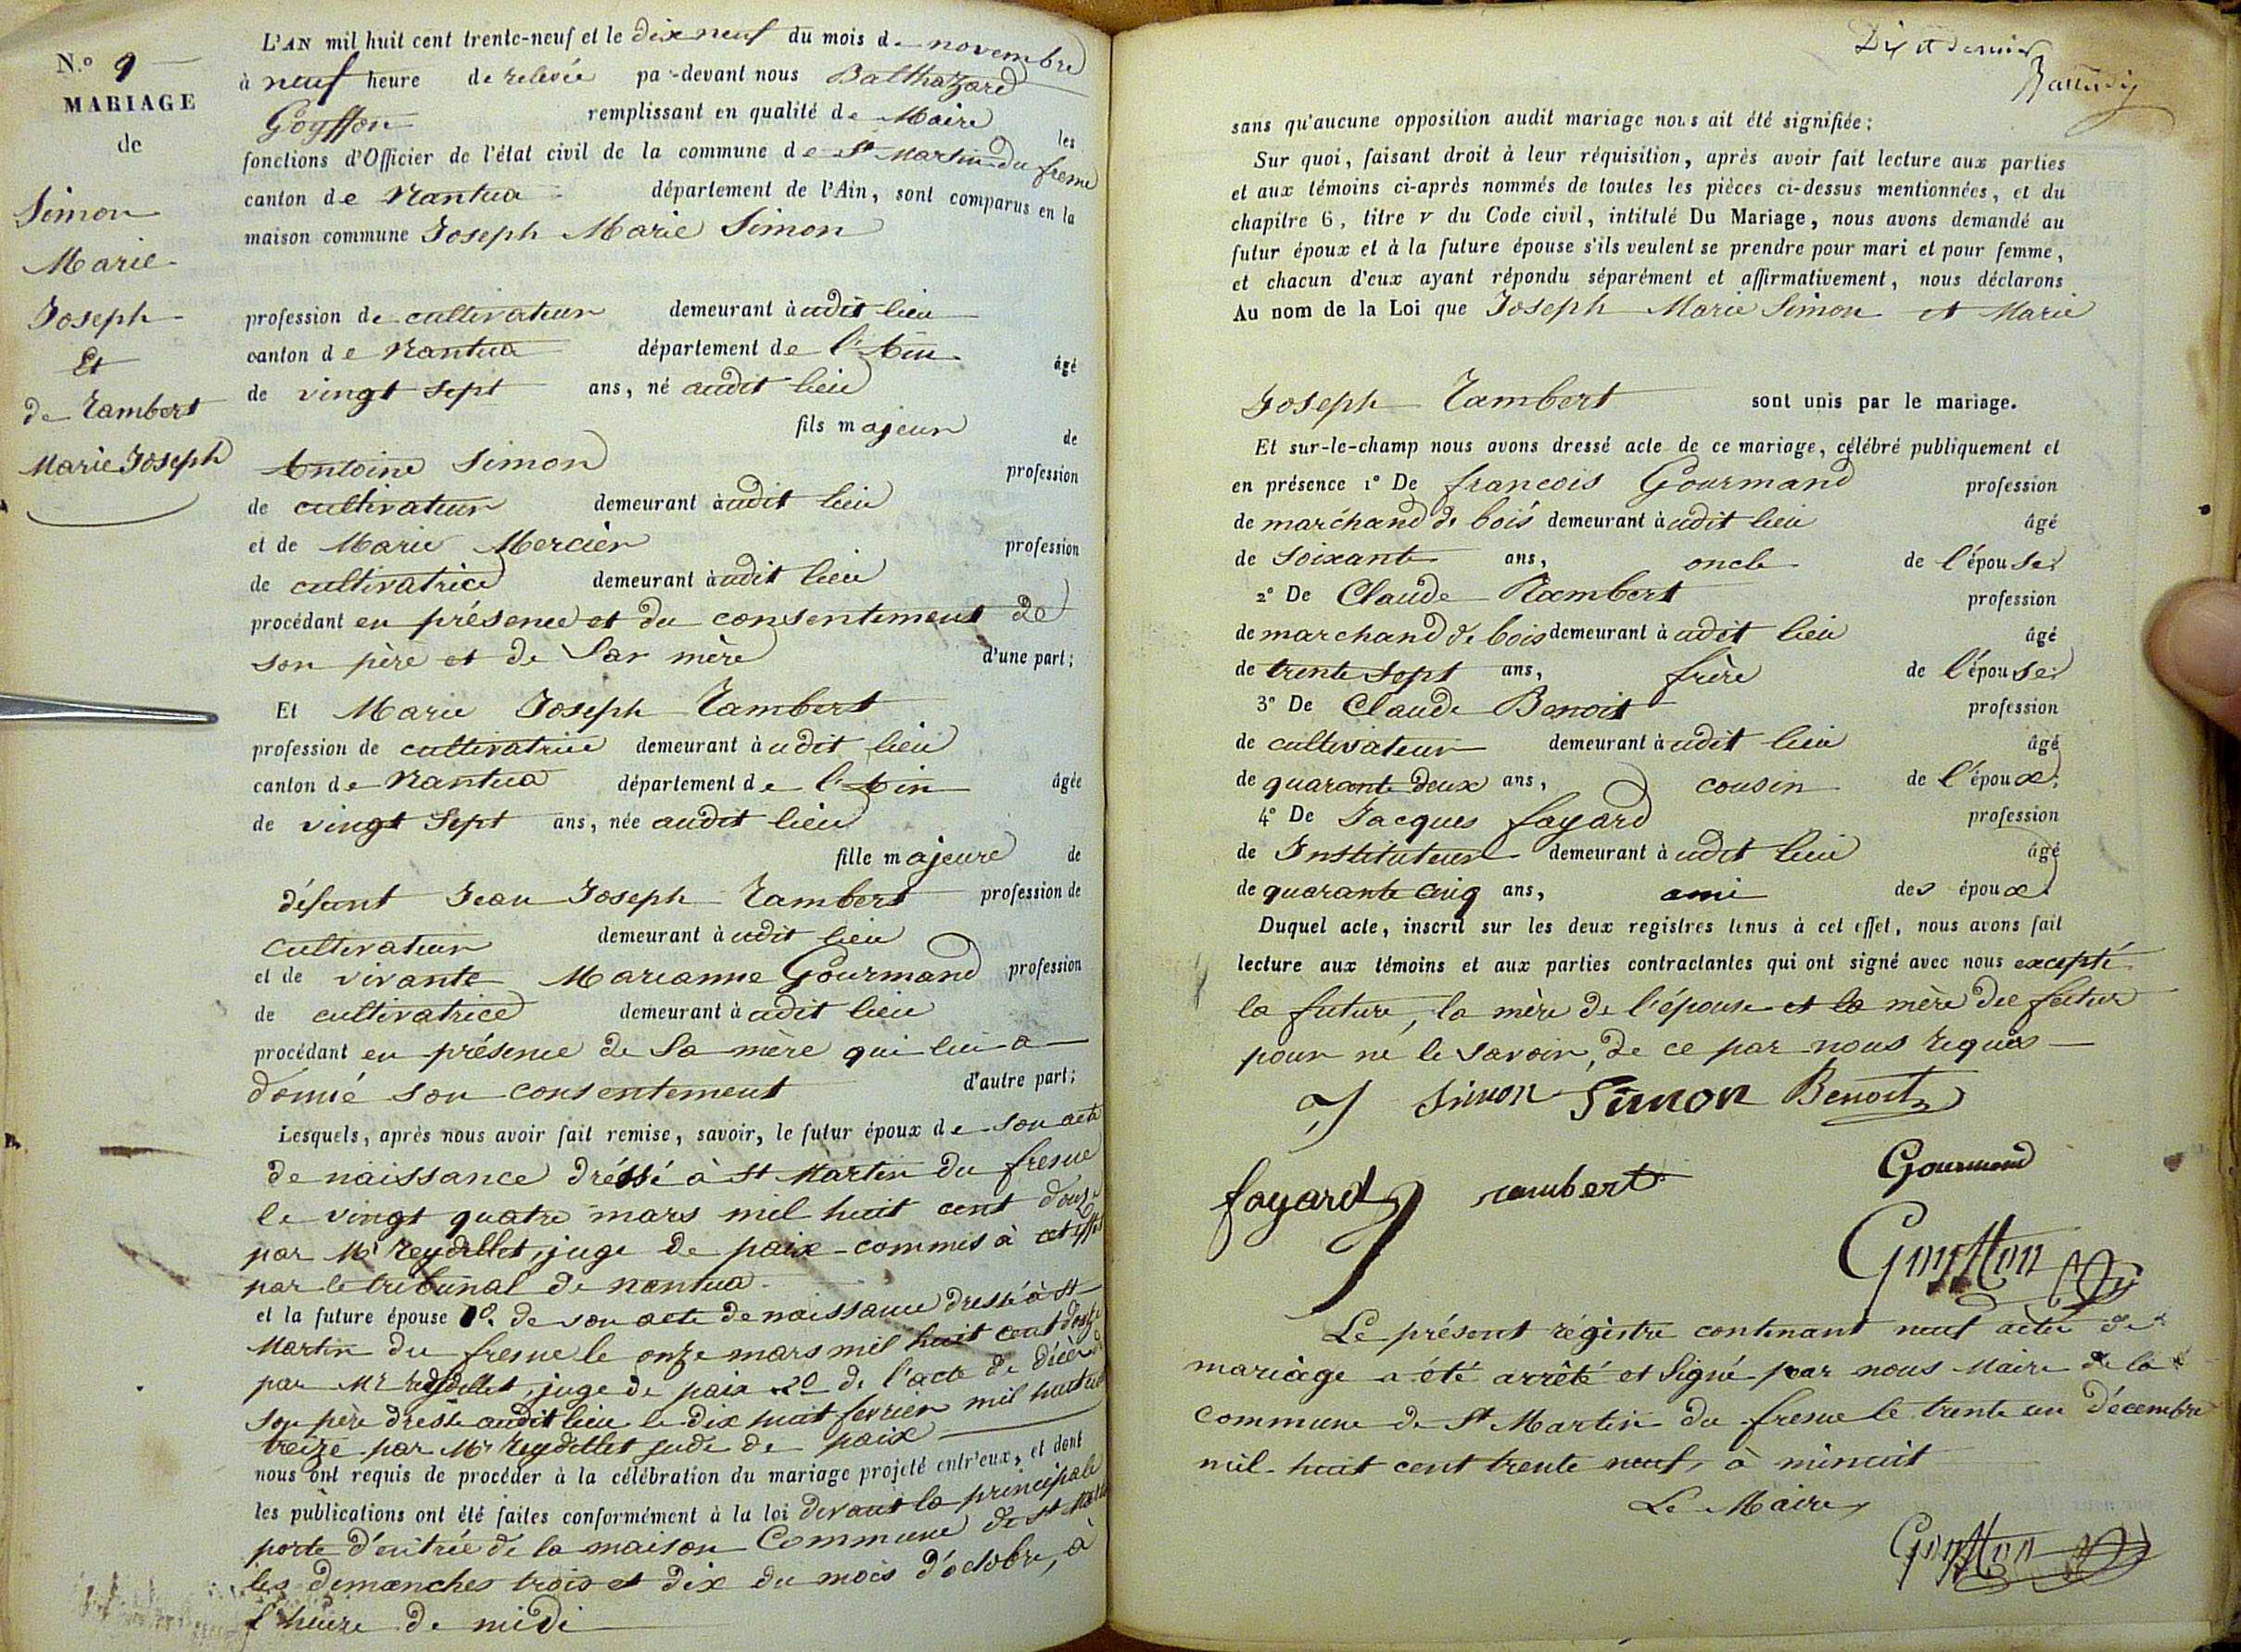 N.º 9
MARIAGE
de
Simon
Marie
Joseph
Et
de Rambert
Marie Joseph
L'AN mil huit cent trente-neuf et le dix neuf du mois de novembre
à neuf heure de relevée par-devant nous Balthazard
Goyffon remplissant en qualité de Maire les
fonctions d'Officier de l'état civil de la commune de St Martin du fresne
canton de Nantua département de l'Ain, sont comparus en la
maison commune Joseph Marie Simon
profession de cultivateur demeurant à udit lieu
canton de Nantua département de l'Ain âgé
de vingt sept ans, né audit lieu
fils majeur de
Antoine Simon profession
de cultivateur demeurant à udit lieu
et de Marie Mercier profession
de cultivatrice demeurant à udit lieu
procédant en présence et du consentement de
son père et de Sa mère d'une part;
Et Marie Joseph Rambert
profession de cultivatrice demeurant à udit lieu
canton de Nantua département de l'Ain âgée
de vingt Sept ans, née audit lieu
fille majeure de
défunt Jean Joseph Rambert profession de
cultivateur demeurant à udit lieu
et de vivante Marianne Gourmand profession
de cultivatrice demeurant à udit lieu
procédant en présence de Sa mère qui lui a
donné son consentement d'autre part;
Lesquels, après nous avoir fait remise, savoir, le futur époux de son acte
de naissance dréssé à St Martin du fresne
le vingt quatre mars mil huit cent douze
par Mr Reydellet, juge de paix commis à cet effet
par le tribunal de nantua
et la future épouse 1º. de son acte de naissance dressé à St
Martin du fresne le onze mars mil huit cent douze
par Mr Reydellet, juge de paix 2º de l'acte de décès de
son père dressé audit lieu le dix huit fevrier mil huit cent
treize par Mr Reydellet juge de paix
nous ont requis de procéder à la célébration du mariage projeté entr'eux, et dont
les publications ont été faites conformément à la loi devant la principale
porte d'entrée de la maison Commune de St Martin
les dimanches trois et dix du mois d'octobre, à
l'heure de midi
Dix et dernier
sans qu'aucune opposition audit mariage nous ait été signifiée;
Sur quoi, faisant droit à leur réquisition, après avoir fait lecture aux parties
et aux témoins ci-après nommés de toutes les pièces ci-dessus mentionnées, et du
chapitre 6, titre v du Code civil, intitulé Du Mariage, nous avons demandé au
futur époux et à la future épouse s'ils veulent se prendre pour mari et pour femme,
et chacun d'eux ayant répondu séparément et affirmativement, nous déclarons
Au nom de la Loi que Joseph Marie Simon et Marie
Joseph Rambert sont unis par le mariage.
Et sur-le-champ nous avons dressé acte de ce mariage, célébré publiquement et
en présence 1º De francois Gourmand profession
de marchand de bois demeurant à udit lieu âgé
de Soixante ans, oncle de l'épouse;
2º De Claude Rambert profession
de marchand de bois demeurant à udit lieu âgé
de trente Sept ans, frère de l'épouse;
3º De Claude Benoit profession
de cultivateur demeurant à udit lieu âgé
de quarante deux ans, cousin de l'époux;
4º De Jacques fayard profession
de Instituteur demeurant à udit lieu âgé
de quarante cinq ans, ami des époux.
Duquel acte, inscrit sur les deux registres tenus à cet effet, nous avons fait
lecture aux témoins et aux parties contractantes qui ont signé avec nous excepté
la future, la mère de l'épouse et la mère du futur
pour ne le savoir, de ce par nous requis
Simon Simon Benoit
fayard rambert Gourmand
Goyffon
Le présent régistre contenant neuf actes de
mariage a été arrêté et Signé par nous Maire de la
commune de St Martin du fresne le trente un Décembre
mil huit cent trente neuf, à minuit
Le Maire,
Goyffon